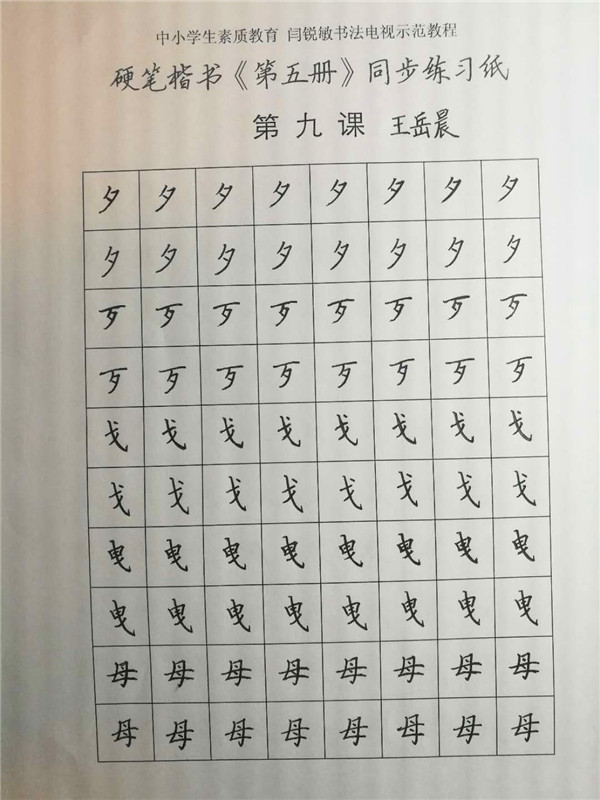 中小学生素质教育 闫锐敏书法电视示范教程
硬笔楷书《第五册》同步练习纸
第九课 王岳晨
夕 夕 夕 夕 夕 夕 夕 夕
夕 夕 夕 夕 夕 夕 夕 夕
歹 歹 歹 歹 歹 歹 歹 歹
歹 歹 歹 歹 歹 歹 歹 歹
戈 戈 戈 戈 戈 戈 戈 戈
戈 戈 戈 戈 戈 戈 戈 戈
曳 曳 曳 曳 曳 曳 曳 曳
曳 曳 曳 曳 曳 曳 曳 曳
母 母 母 母 母 母 母 母
母 母 母 母 母 母 母 母